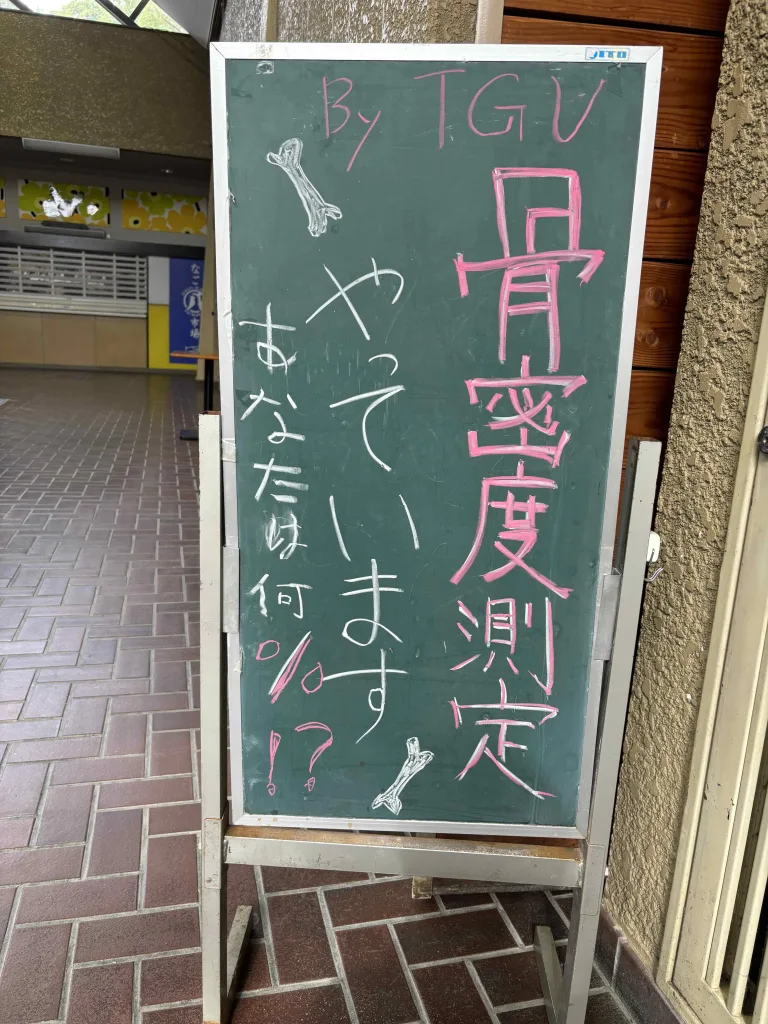 By TGU
骨密度測定
やっています
あなたは何%!?
JITO
なご
市場